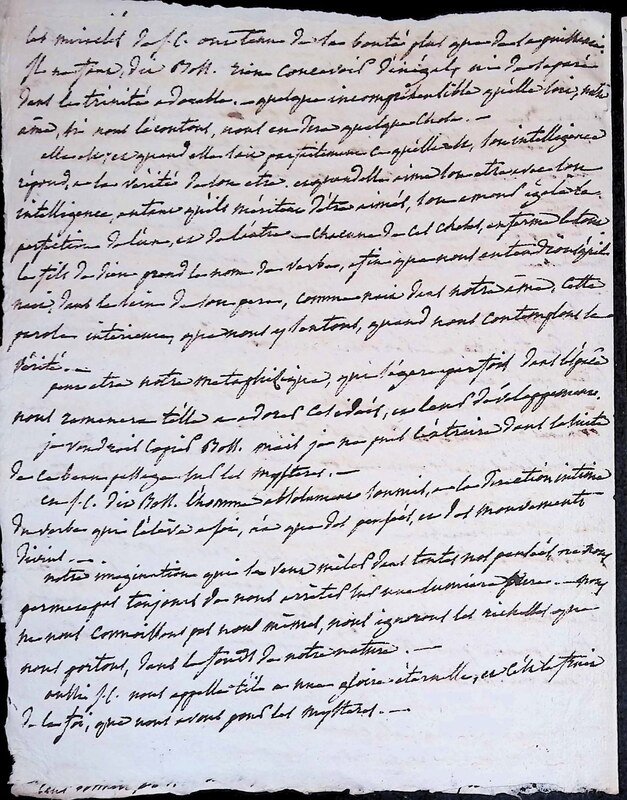 les miracles de J.C. ont tenu de la bonté plus que de la puissance
il ne faut, dit Boss. rien concevoir d'inégal, ni de séparé
dans la trinité adorable. — quelque incompréhensible qu'elle soit, notre
âme, si nous l'écoutons, nous en dira quelque chose. —
elle est; et quand elle sait parfaitement ce qu'elle est, son intelligence
répond, a la vérité de son etre. et quand elle aime son etre avec son
intelligence, autant qu'ils méritent d'être aimés, son amour égale la
perfection de l'un, et de l'autre — chacune de ces choses, enferme le tout
le fils de dieu prend le nom de verbe, afin que nous entendions qu'il
nait, dans le sein de son pere, comme nait dans notre âme, cette
parole intérieure, que nous y sentons, quand nous contemplons la
vérité. —
peut etre notre metaphisique, qui s'égare parfois dans
nous ramenera t'elle a adorer ces idées, et leurs développements,
je voudrois copier Boss. mais je ne puis l'extraire dans la suite
de ce beau passage sur les mysteres. —
en J.C. dit Boss. l'homme absolument soumis, a la direction intime
du verbe qui l'élève a soi, n'a que des pensées, et des mouvements
divins. —
notre imagination qui se veut mêler dans toutes nos pensées, ne nous
permet pas toujours de nous arrêter sur une lumière pure. — nous
ne nous connoissons pas nous mêmes, nous ignorons les richesses que
nous portons, dans le fonds de notre nature. —
aussi J.C. nous appelle t'il a une gloire éternelle, et c'est le fruit
de la foi, que nous avons pour les mysteres. —